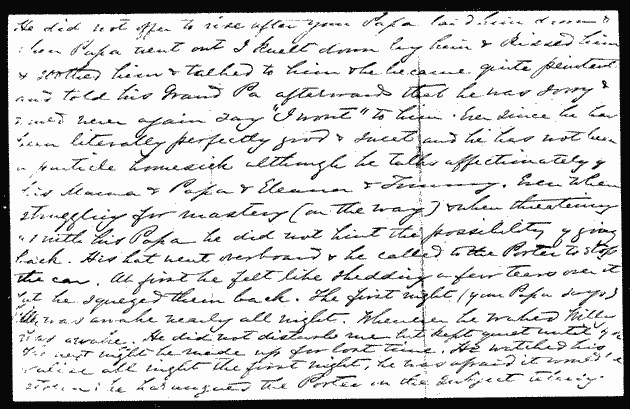 He did not offer to rise after your Papa laid him down &
when Papa went out I knelt down by him & kissed him
& soothed him & talked to him & he became quite penitent
and told his Grand Pa afterward that he was sorry &
would never again say "I wont" to him. Ever since he has
been literally perfectly good & sweet and he has not been
a particle homesick although he talks affectionately of
his Mama & Papa & Eleanor & Timmy. Even when
struggling for mastery (on the way) & when threatening
with his Papa he did not hint the possibility of going
back. His hat went overboard & he called to the Porter to stop
the car. At first he felt like shedding a few tears over it
but he squeezed them back. The first night (your Papa says)
He was awake nearly all night. Whenever he waked Willie
was awake. He did not disturb me but kept quiet until
next night he made up for lost time. He watched his
valise all night the first night, he was afraid it would be
stolen: he harangued the Porter on the subject